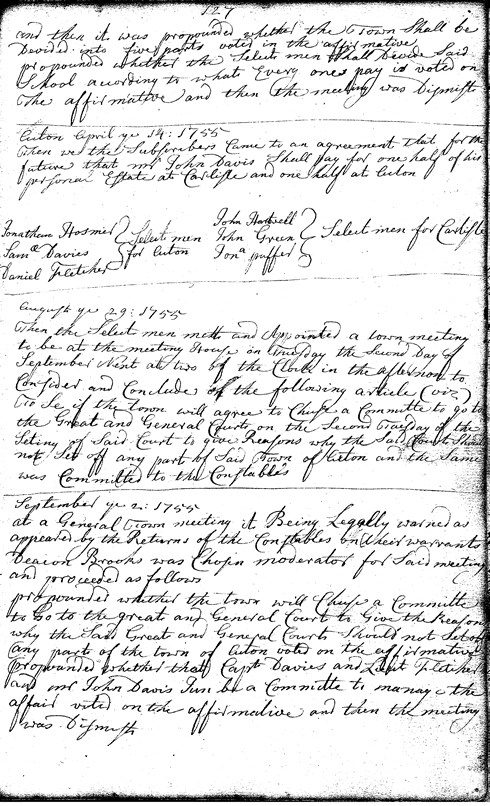 127
and then it was propounded whether the Town Shall be
Devided into five parts voted in the affirmative
propounded whether the Select men Shall Devide Said
School according to what Every ones pay is voted on
the affirmative and then the meeting was Dismisst
Acton April ye 14: 1755
Then we the Subscribers Came to an agreement that for the
future that mr John Davis Shall pay for one half of his
personal Estate at Carlisle and one half at Acton
Jonathan Hosmer
Samll Davies
Daniel Fletcher
Select men
for Acton
John Hartwell
John Green
Jona puffer
Select men for Carlisle
August ye 29: 1755
Then the Select men mett and Appointed a town meeting
to be at the meeting House on Tuesday the Second Day of
September Next at two of the Clock in the afternoon to
Consider and Conclude of the following article (viz)
To See if the town will agree to Chuse a Committe to go to
the Great and General Court on the Second Tuesday of the
Seting of Said Court to give Reasons why the Said Court Should
not Set off any part of Said Town of Acton and the Same
was Committed to the Constables
September ye 2: 1755
at a General Town meeting it Being Legally warned as
appeared by the Returns of the Constables on their warrants
Deacon Brooks was Chosen moderator for Said meeting
and proceeded as follows
propounded whether the town will Chuse a Committe
to Go to the great and General Court to Give the Reasons
why the Said Great and General Court Should not Set off
any part of the town of Acton voted on the affirmative
propounded whether that Capt Davies and Leut Fletcher
and mr John Davis Jun be a Committe to manage the
affair voted on the affirmative and then the meeting
was Dismisst